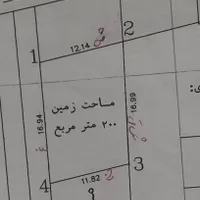 2
12.14
1
مساحت زمین
۲۰۰ متر مربع
16.99
16.94
3
11.82
4